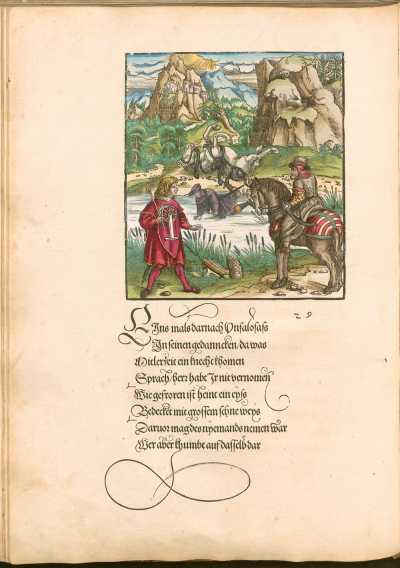 29
EIns mals darnach Unfalo saß
In seinen gedancken da was
Mitlerzeit ein knecht khomen
Sprach herr habt Ir nit vernomen
Wie gefroren ist heint ein eyß
Bedeckt mit grossem schne weyß
Daruor mag des nyemands nemen war
Wer aber khumbt auf dasselb dar